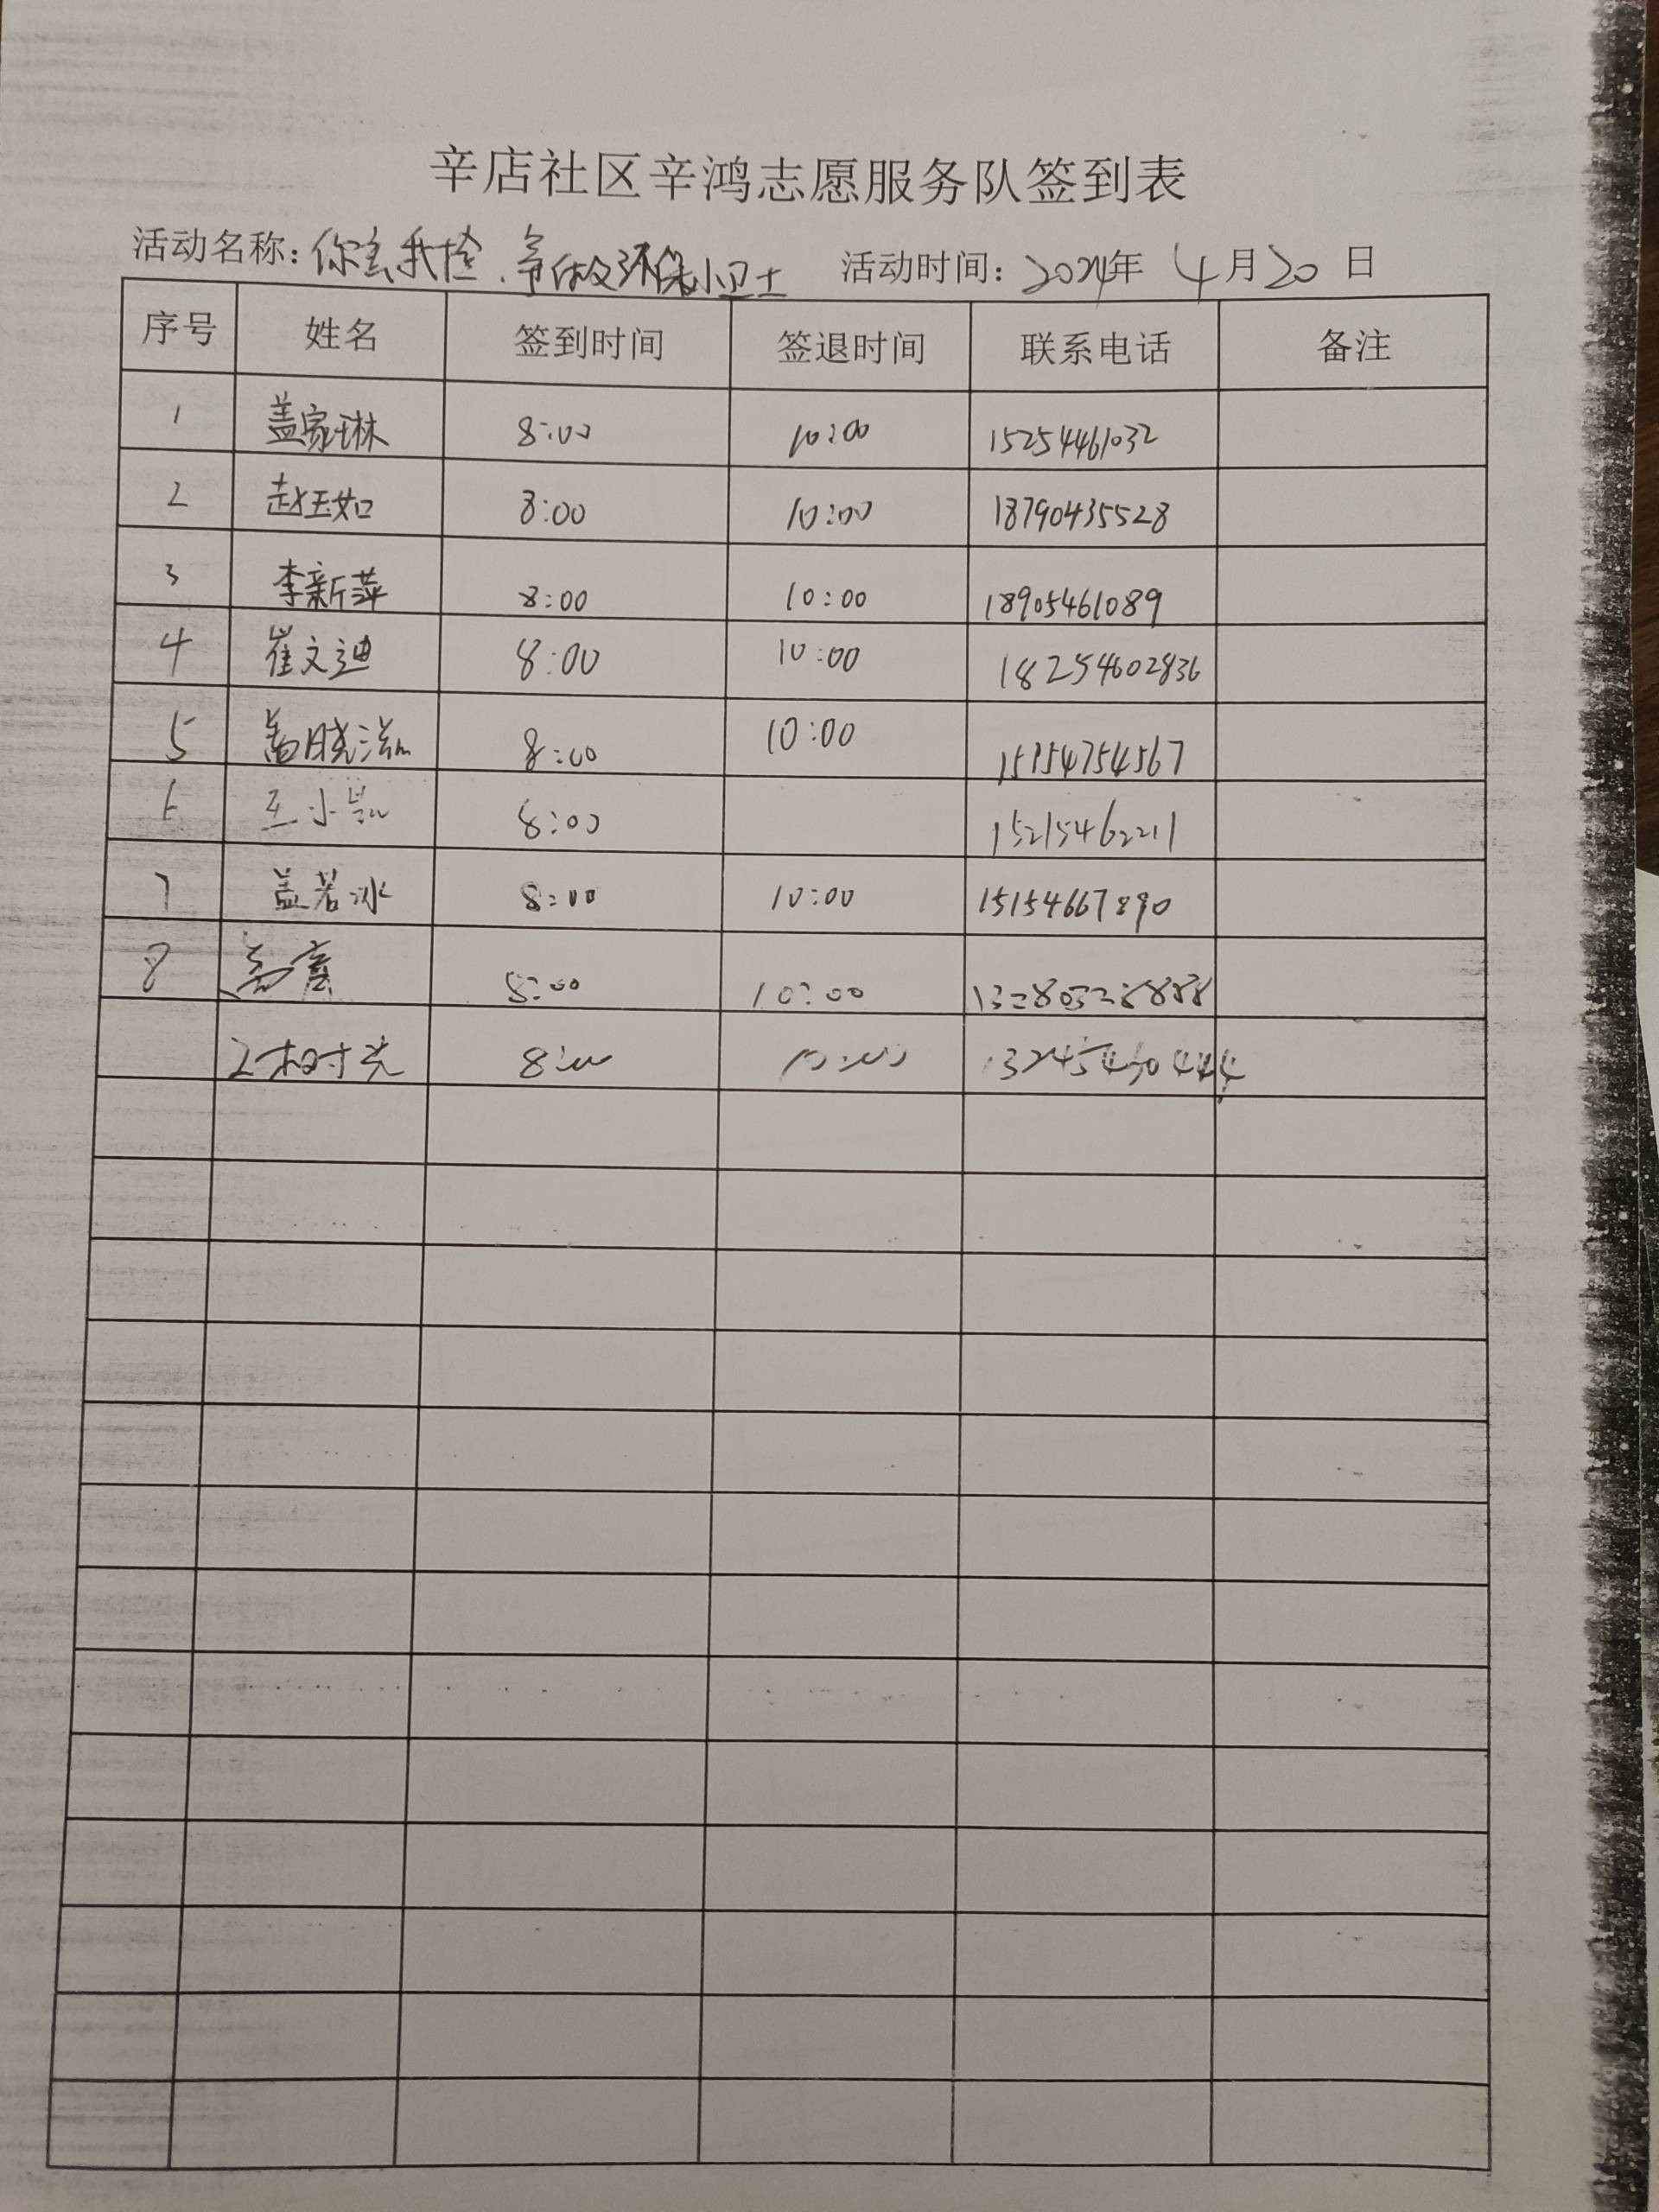 辛店社区辛鸿志愿服务队签到表
活动名称:你丢我捡,争做环保小卫士 活动时间:2024年 4月20日
序号 姓名 签到时间 签退时间 联系电话 备注
1 盖家琳 8:00 10:00 15254461032
2 赵玉如 8:00 10:00 18790435528
3 李新萍 8:00 10:00 18905461089
4 崔文迪 8:00 10:00 18254602836
5 盖晓 8:00 10:00
6 王小凯 8:00 15215462211
7 盖若冰 8:00 10:00 15154667890
8 8:00 10:00 13280328888
8:00 10:00